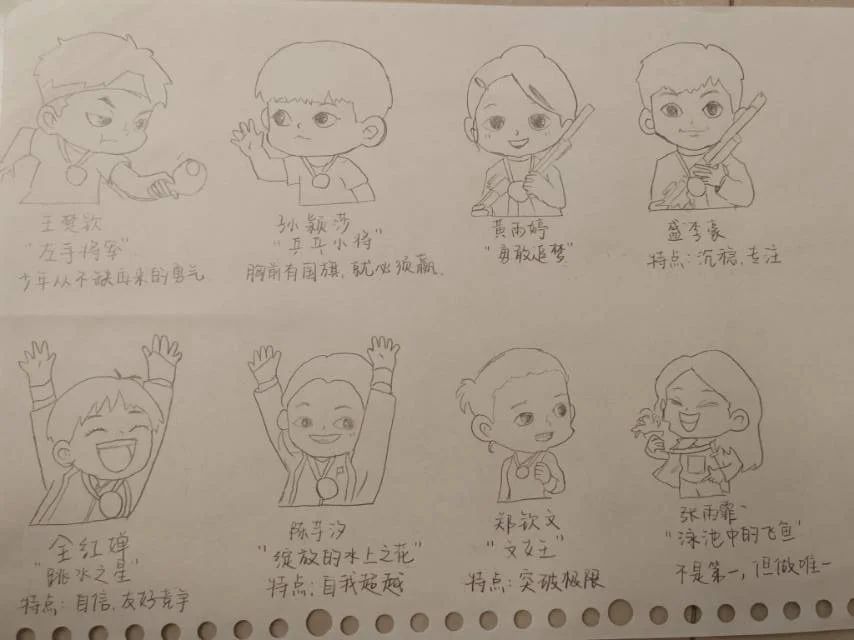 王楚钦
"左手将军"
少年从不缺再来的勇气.
孙颖莎
"乒乓小将"
胸前有国旗,就必须赢.
黄雨婷
"勇敢追梦"
盛李豪
特点:沉稳,专注
全红婵
"跳水之星"
特点:自信,友好竞争
陈芋汐
"绽放的水上之花"
特点:自我超越
郑钦文
"文女王"
特点:突破极限
张雨霏
"泳池中的飞鱼"
不是第一,但做唯一